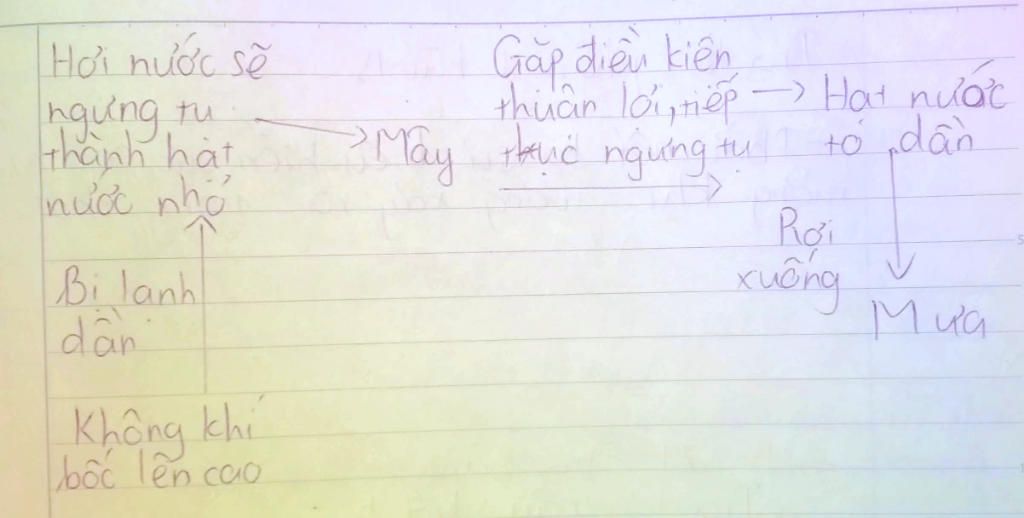 Hơi nước sẽ
ngưng tụ
thành hạt
nước nhỏ
Mây
Gặp điều kiện
thuận lợi, tiếp
thục ngưng tụ
Hạt nước
to dần
Rơi
xuống
Mưa
Bị lạnh
dần
Không khí
bốc lên cao